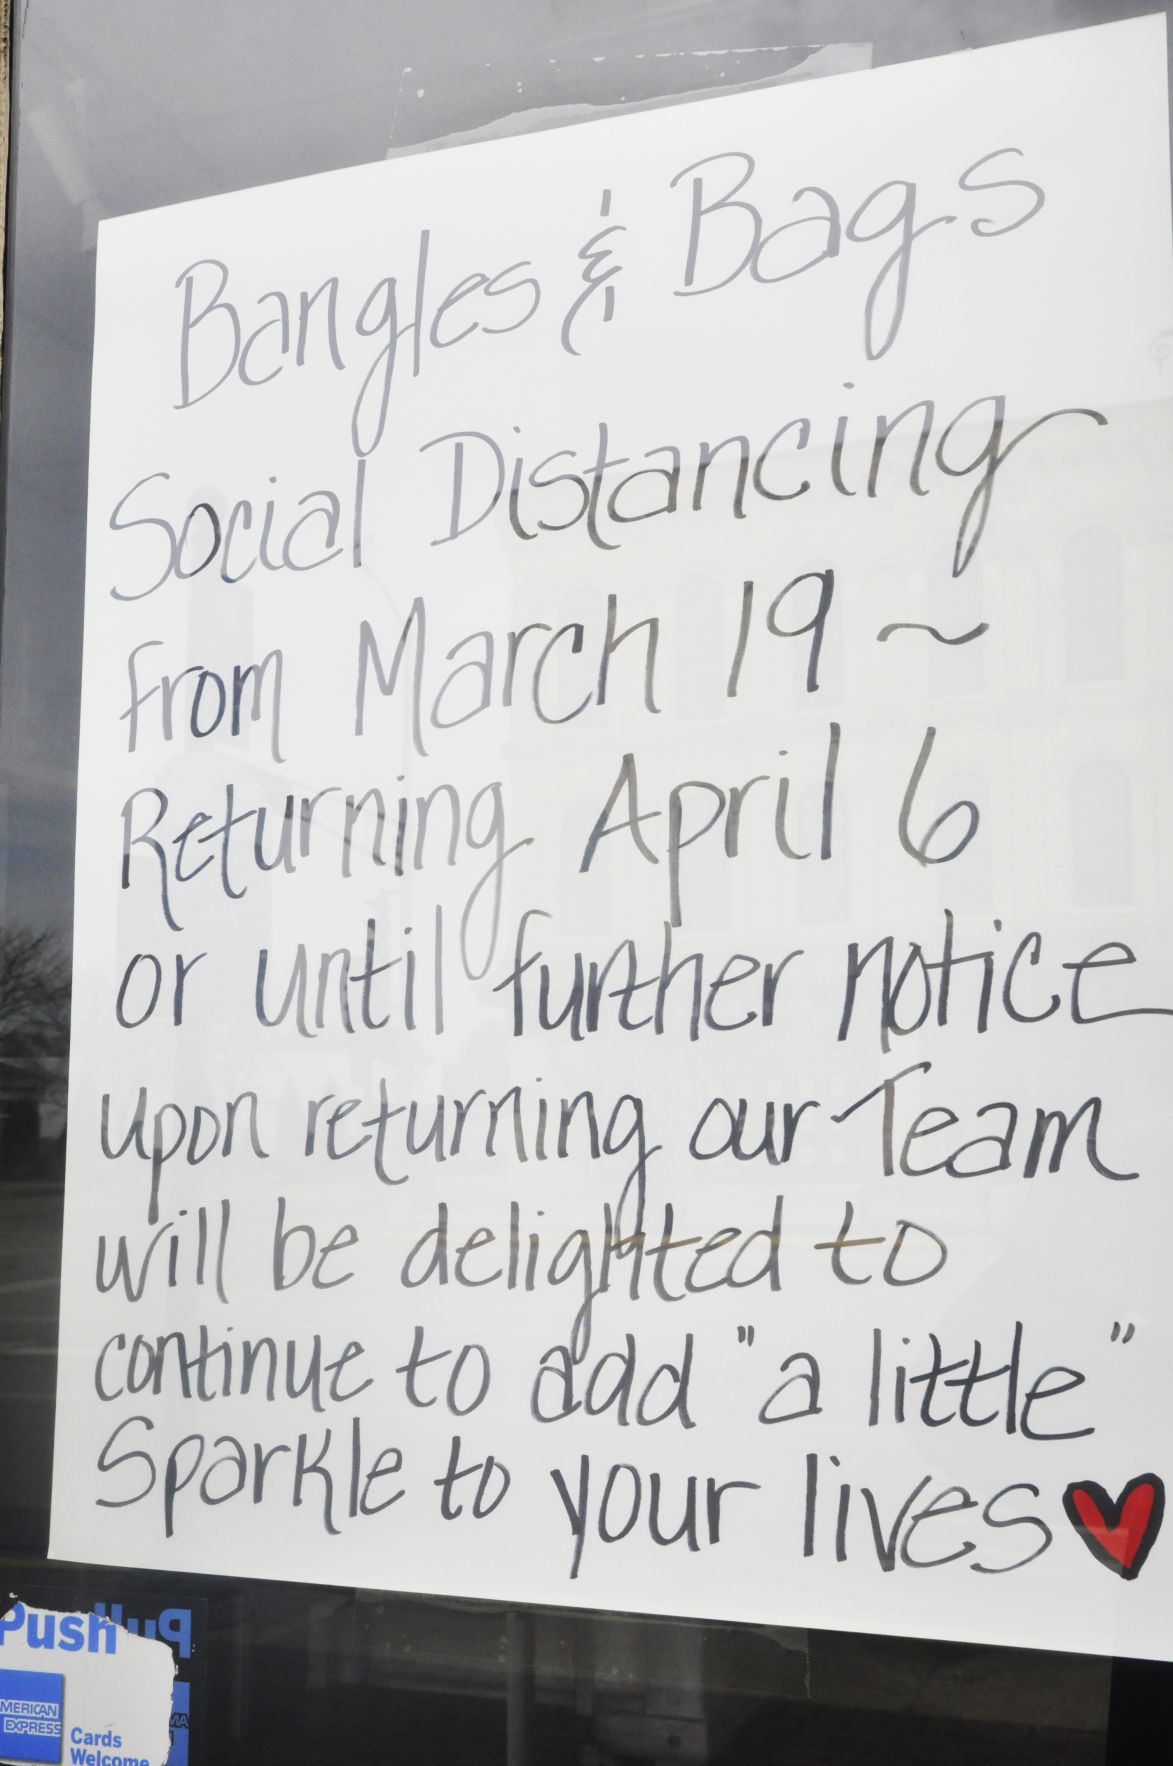 Bangles & Bags
Social Distancing
from March 19 ~
Returning April 6
or until further notice
upon returning our Team
will be delighted to
continue to add "a little"
Sparkle to your lives
Push
AMERICAN
EXPRESS
Cards
Welcome